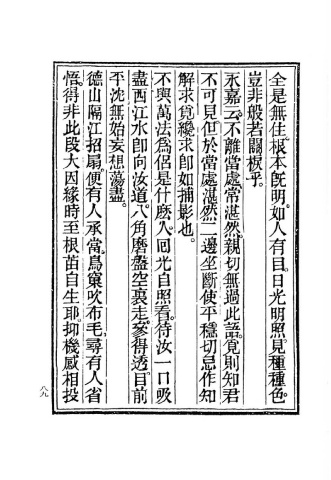 全是無住根本旣明。如人有目。日光明照。見種種色。
豈非般若關棙乎。
永嘉云。不離當處常湛然。親切無過此語。覓則知君
不可見。但於當處湛然。二邊坐斷。使平穩。切忌作知
解求覓。纔求卽如捕影也。
不與萬法爲侶。是什麽人。回光自照看。待汝一口吸
盡西江水卽向汝道。八角磨盤空裏走。參得透目前
平沈。無始妄想蕩盡。
德山隔江招扇。便有人承當。鳥窠吹布毛。尋有人省
悟。得非此段大因緣時至根苗自生耶。抑機感相投
八九